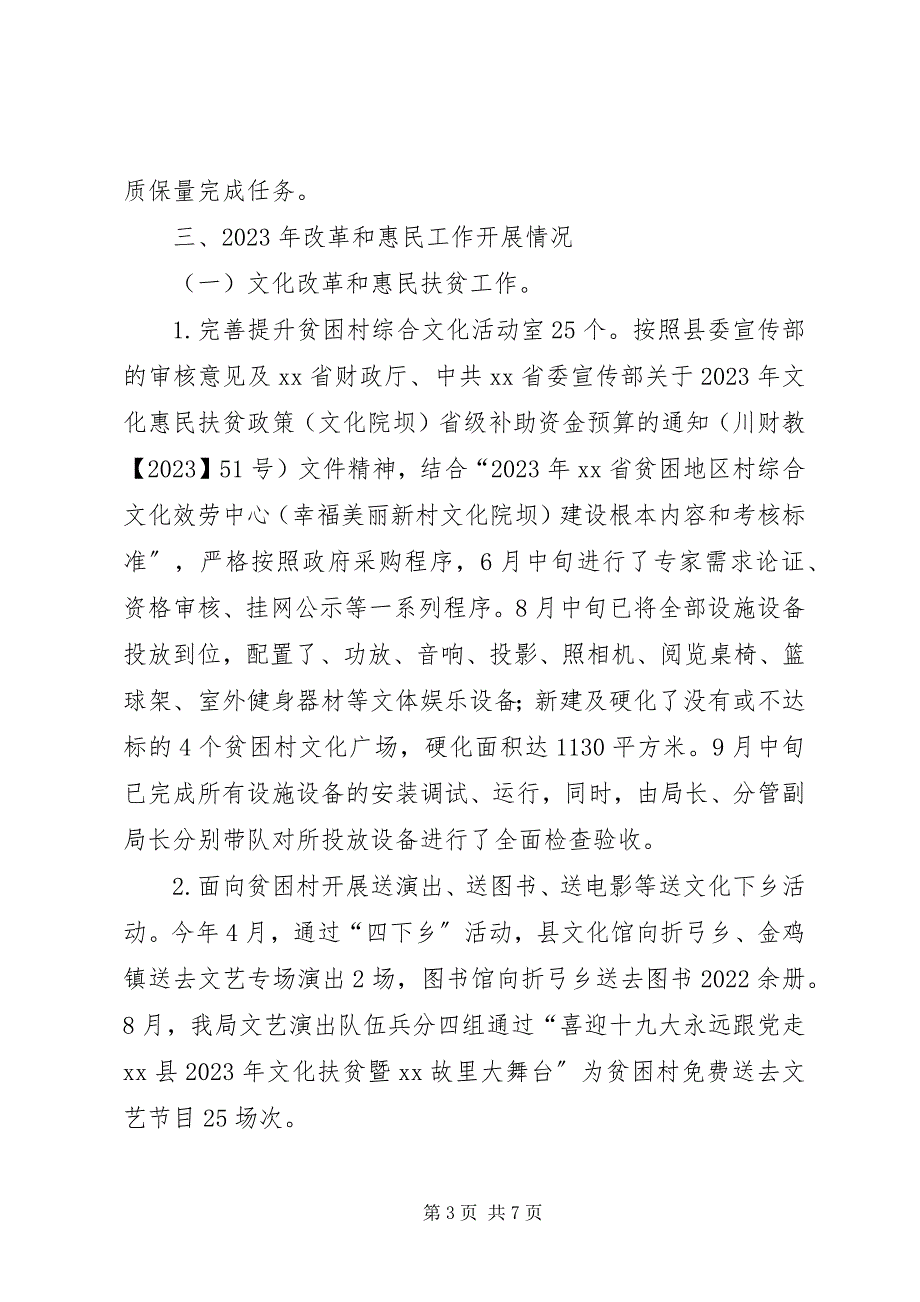 质保量完成任务。
三、2023 年改革和惠民工作开展情况
（一）文化改革和惠民扶贫工作。
1.完善提升贫困村综合文化活动室 25 个。按照县委宣传部
的审核意见及 xx 省财政厅、中共 xx 省委宣传部关于 2023 年文
化惠民扶贫政策（文化院坝）省级补助资金预算的通知（川财教
【2023】51 号）文件精神，结合“2023 年 xx 省贫困地区村综合
文化效劳中心（幸福美丽新村文化院坝）建设根本内容和考核标
准〞，严格按照政府采购程序，6 月中旬进行了专家需求论证、
资格审核、挂网公示等一系列程序。8 月中旬已将全部设施设备
投放到位，配置了、功放、音响、投影、照相机、阅览桌椅、篮
球架、室外健身器材等文体娱乐设备；新建及硬化了没有或不达
标的 4 个贫困村文化广场，硬化面积达 1130 平方米。9 月中旬
已完成所有设施设备的安装调试、运行，同时，由局长、分管副
局长分别带队对所投放设备进行了全面检查验收。
2.面向贫困村开展送演出、送图书、送电影等送文化下乡活
动。今年 4 月，通过“四下乡〞活动，县文化馆向折弓乡、金鸡
镇送去文艺专场演出 2 场，图书馆向折弓乡送去图书 2022 余册。
8 月，我局文艺演出队伍兵分四组通过“喜迎十九大永远跟党走
xx 县 2023 年文化扶贫暨 xx 故里大舞台〞为贫困村免费送去文
艺节目 25 场次。
第 3 页 共 7 页